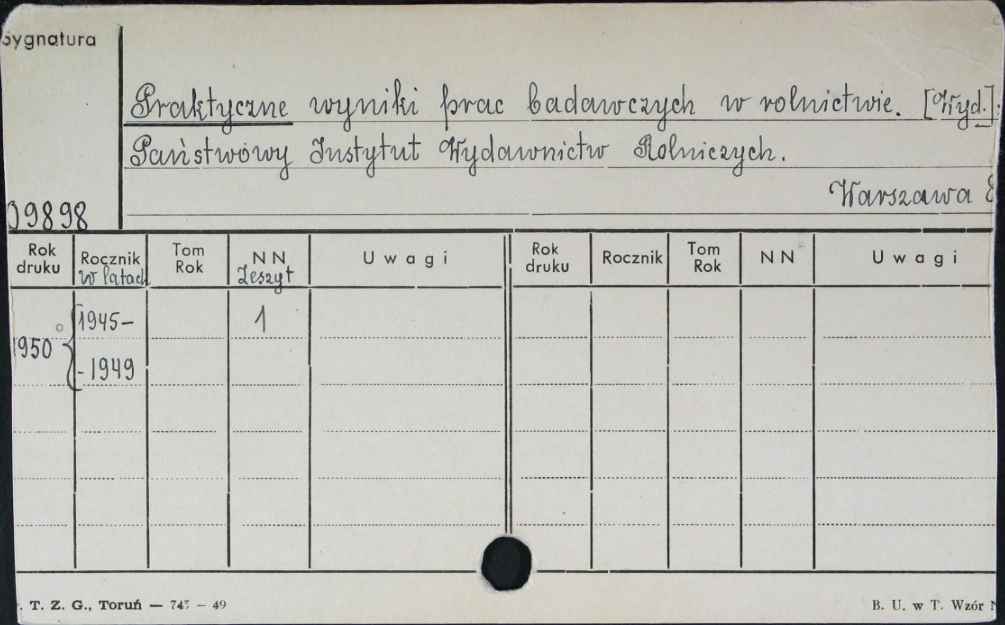 Sygnatura
Praktyczne wyniki prac badawczych w rolnictwie. [Wyd.]
Państwowy Instytut Wydawnictw Rolniczych.
Warszawa
09898
Rok druku Rocznik w latach Tom Rok NN Zeszyt Uwagi Rok druku Rocznik Tom Rok NN Uwagi
1950 1945– 1
- 1949
T. Z. G., Toruń — 745 – 49 B. U. w T. Wzór